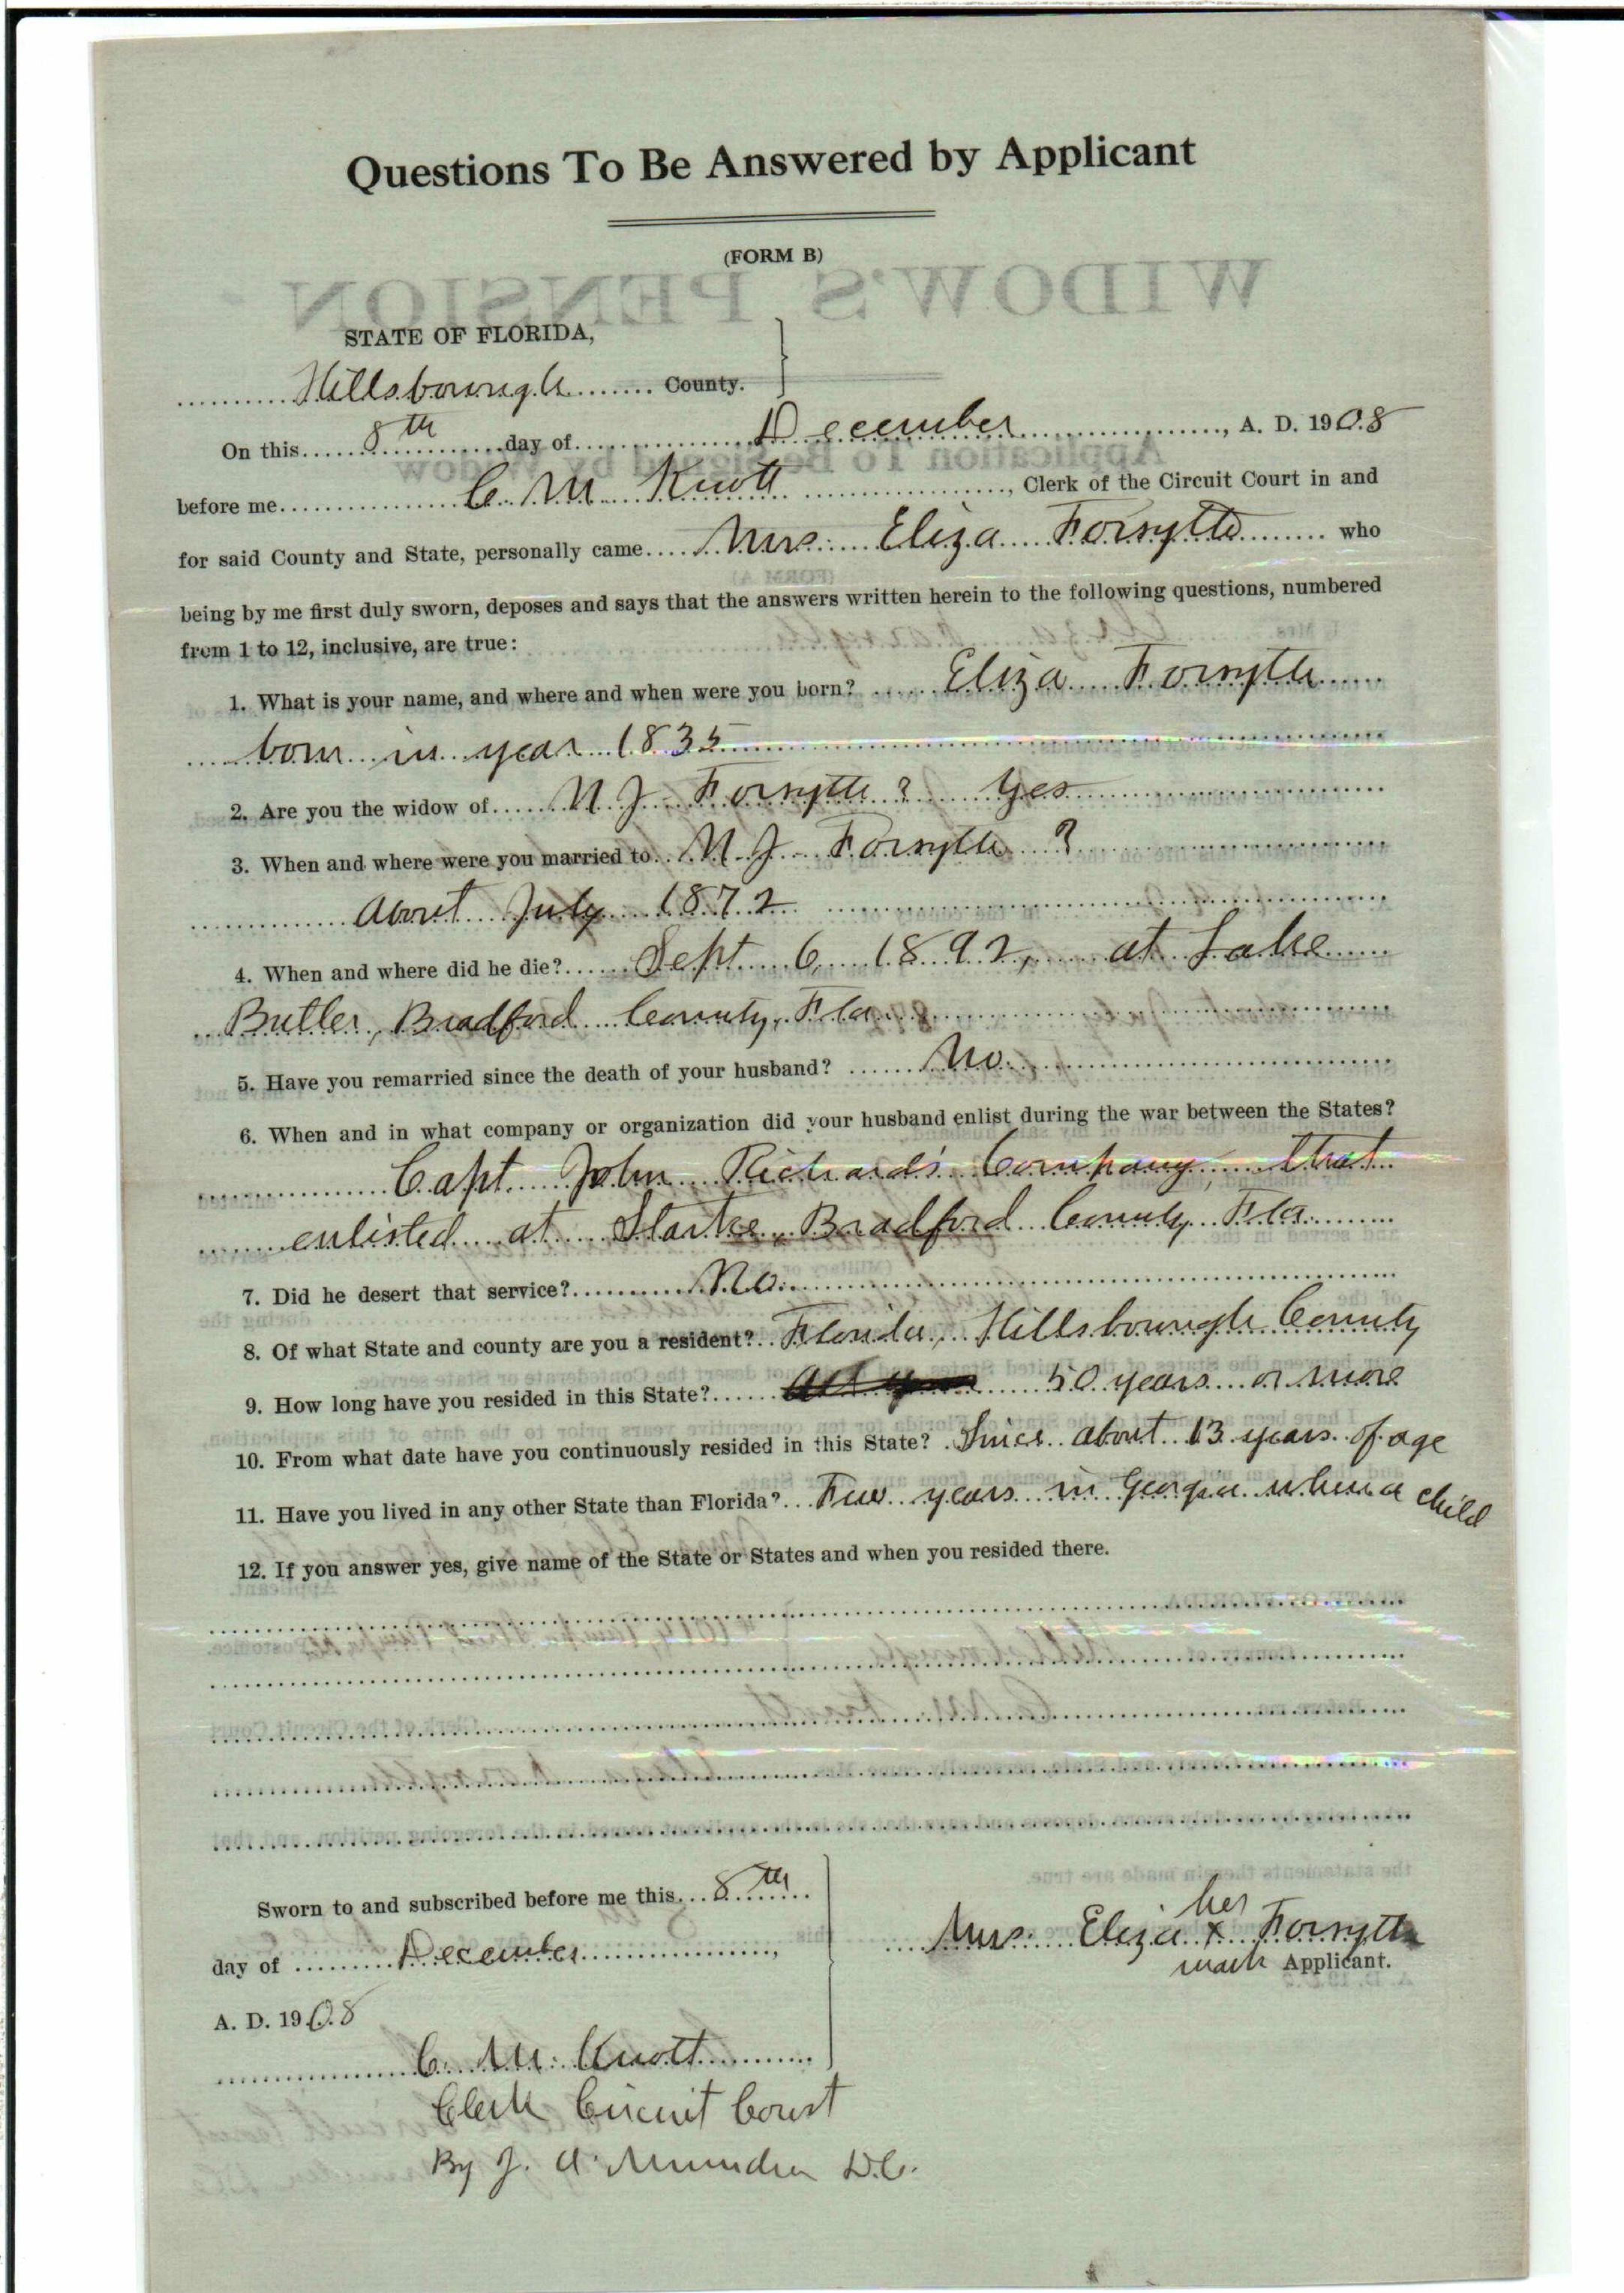 Questions To Be Answered by Applicant
(FORM B)
STATE OF FLORIDA,
Hillsborough County.
On this 8th day of December, A. D. 1908
before me C. M. Knott, Clerk of the Circuit Court in and
for said County and State, personally came Mrs. Eliza Forsyth who
being by me first duly sworn, deposes and says that the answers written herein to the following questions, numbered
from 1 to 12, inclusive, are true:
1. What is your name, and where and when were you born? Eliza Forsyth
born in year 1835
2. Are you the widow of N J Forsyth? Yes
3. When and where were you married to N J Forsyth ?
about July 1872
4. When and where did he die? Sept 6 1892, at Lake
Butler, Bradford County, Fla
5. Have you remarried since the death of your husband? No
6. When and in what company or organization did your husband enlist during the war between the States?
Capt John Richard's Company, that
enlisted at Starke, Bradford County Fla
7. Did he desert that service? No.
8. Of what State and county are you a resident? Florida, Hillsborough County
9. How long have you resided in this State? 50 years or more
10. From what date have you continuously resided in this State? Since about 13 years of age
11. Have you lived in any other State than Florida? Few years in Georgia when a child
12. If you answer yes, give name of the State or States and when you resided there.
Sworn to and subscribed before me this 8th
day of December,
A. D. 1908
C. M. Knott
Clerk Circuit Court
By J. A. D.C.
her
Mrs. Eliza x Forsyth
mark Applicant.